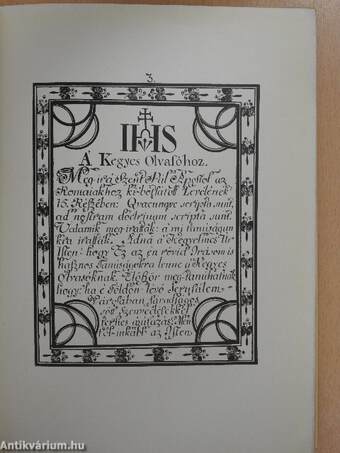 3.
IHS
A Kegyes Olvasóhoz.
Meg irá Szent Pál Apostol az
Romaiakhoz ki-bocsátott Levelének
15. Részében: Qvæcunqve scripta sunt,
ad nostram doctrinam scripta sunt.
Valamik meg irattak: a mi tanuságun
kra irattak. Adná a Kegyelmes Ur
Isten hogy Ez az en rövid Irásom is
hasznos Tanuságokra lenne a Kegyes
Olvasóknak. Elöször meg-tanulhatnák
hogy: ha e Földön levö Jerusalem-
Városában
sok Szenvedésekkel
terhes az utazás: Men
vel-inkább az Isten
Antikvárium.hu